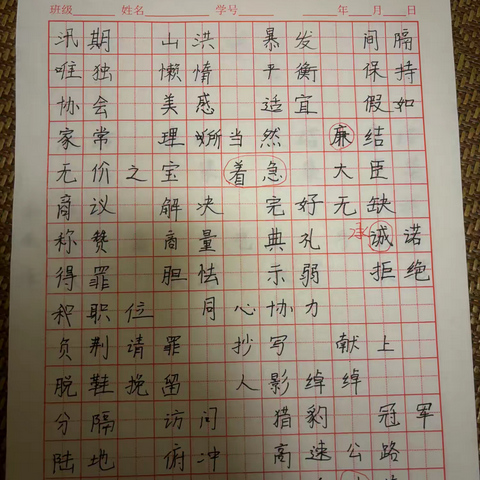 班级 姓名 学号 年 月 日
汛期 山洪 暴发 间隔
唯独 懒惰 平衡 保持
协会 美感 适宜 假如
家常 理所当然 廉结
无价之宝 着急 大臣
商议 解决 完好无缺
称赞 商量 典礼 承诚诺
得罪 胆怯 示弱 拒绝
积职位 同心协力
负荆请罪 抄写 献上
脱鞋挽留 人影绰绰
分隔 访问 猎豹 冠军
陆地 俯冲 高速公路